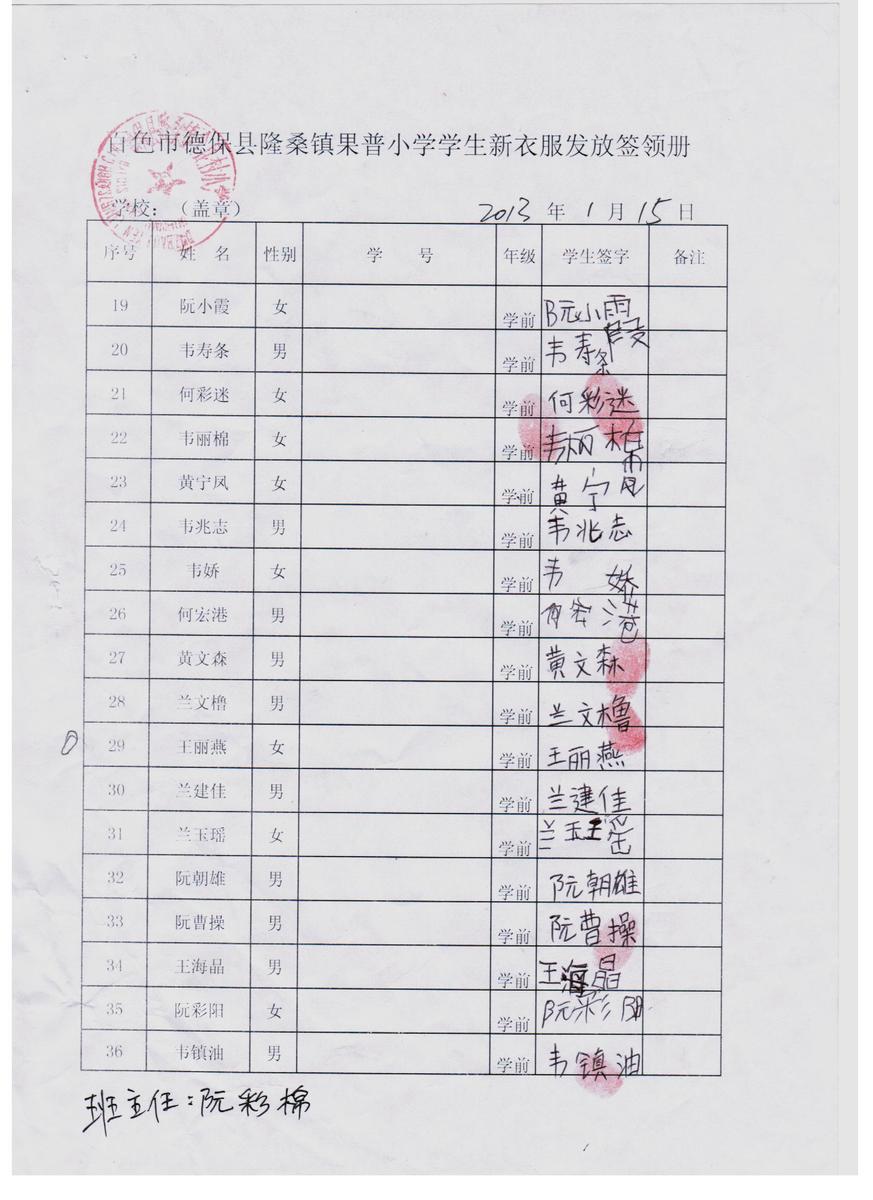 百色市德保县隆桑镇果普小学学生新衣服发放签领册
学校：（盖章） 2013 年 1 月 15 日
序号 姓 名 性别 学 号 年级 学生签字 备注
19 阮小霞 女 学前 阮小霞
20 韦寿条 男 学前 韦寿条
21 何彩迷 女 学前 何彩迷
22 韦丽棉 女 学前 韦丽棉
23 黄宁凤 女 学前 黄宁凤
24 韦兆志 男 学前 韦兆志
25 韦娇 女 学前 韦娇
26 何宏港 男 学前 何宏港
27 黄文森 男 学前 黄文森
28 兰文橹 男 学前 兰文橹
29 王丽燕 女 学前 王丽燕
30 兰建佳 男 学前 兰建佳
31 兰玉瑶 女 学前 兰玉瑶
32 阮朝雄 男 学前 阮朝雄
33 阮曹操 男 学前 阮曹操
34 王海晶 男 学前 王海晶
35 阮彩阳 女 学前 阮彩阳
36 韦镇油 男 学前 韦镇油
班主任：阮彩棉